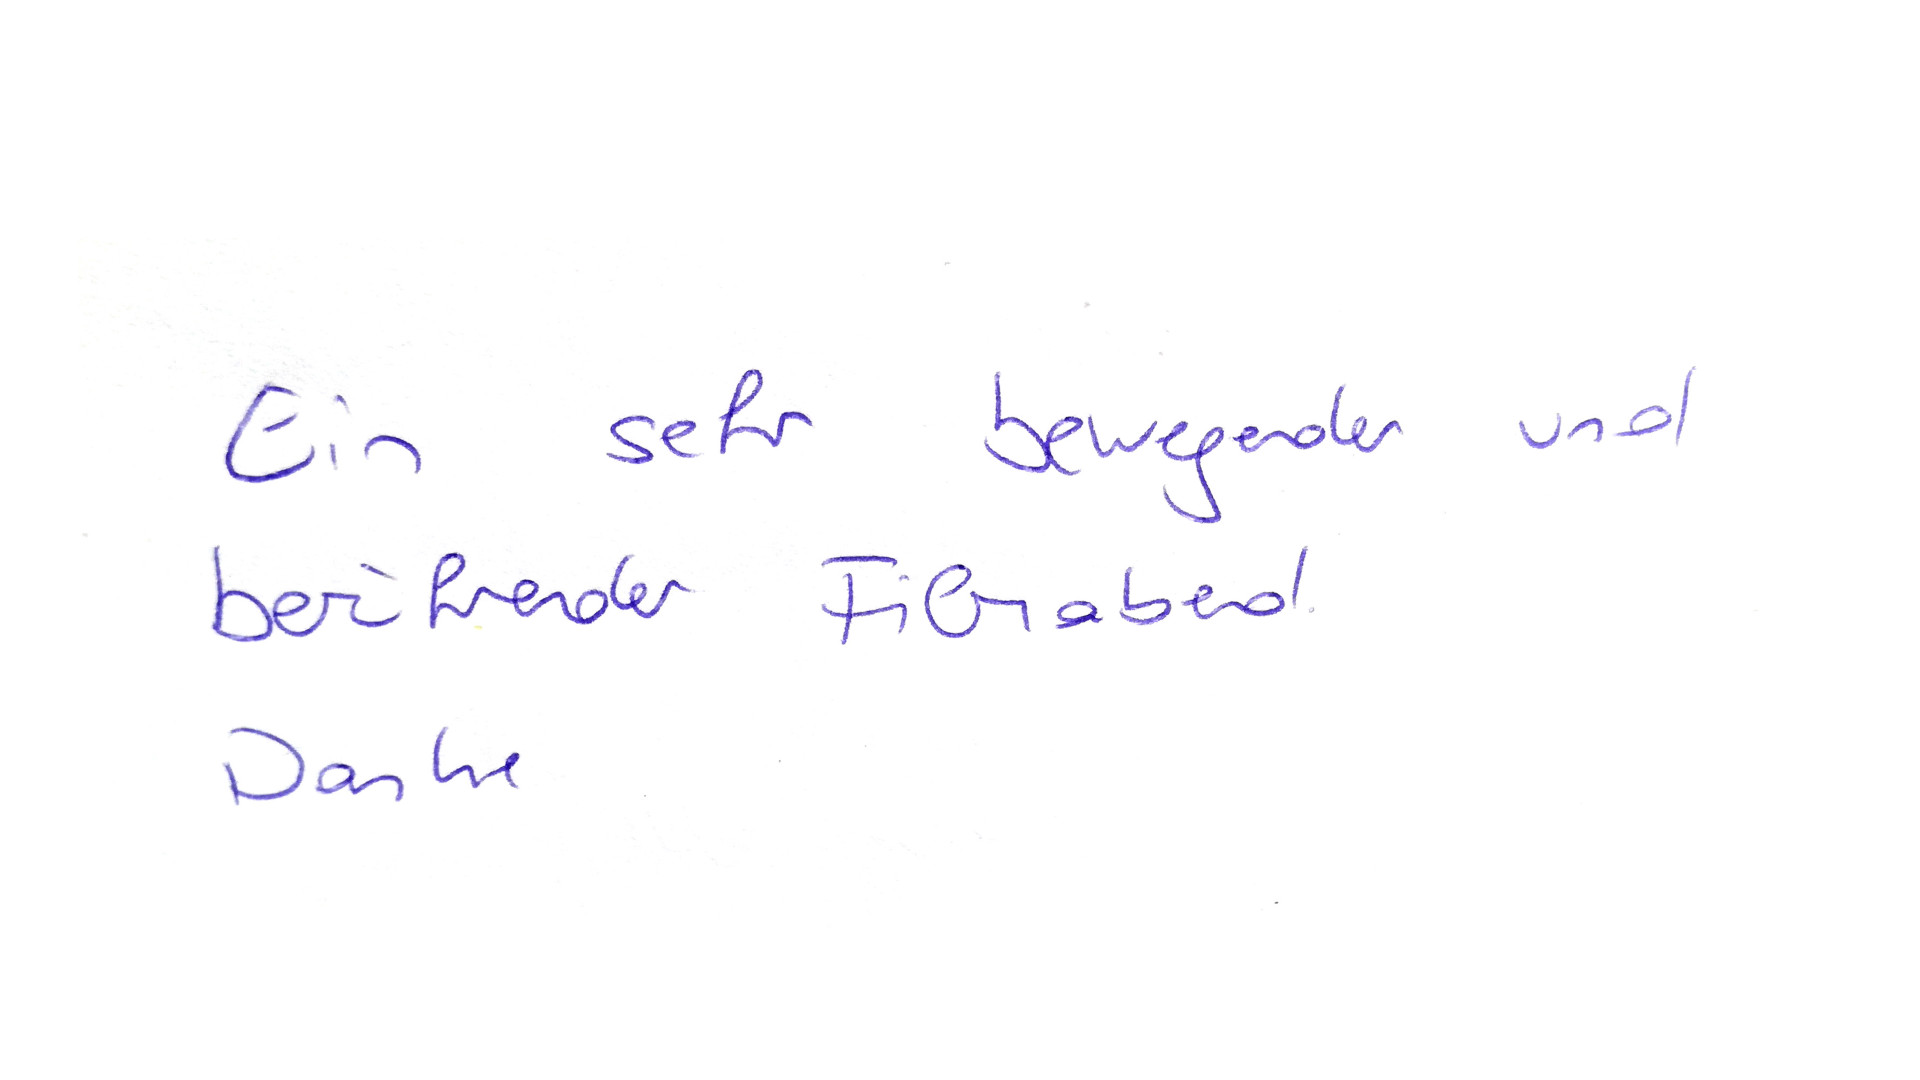 Ein sehr bewegender und
berührender Filmabend.
Danke